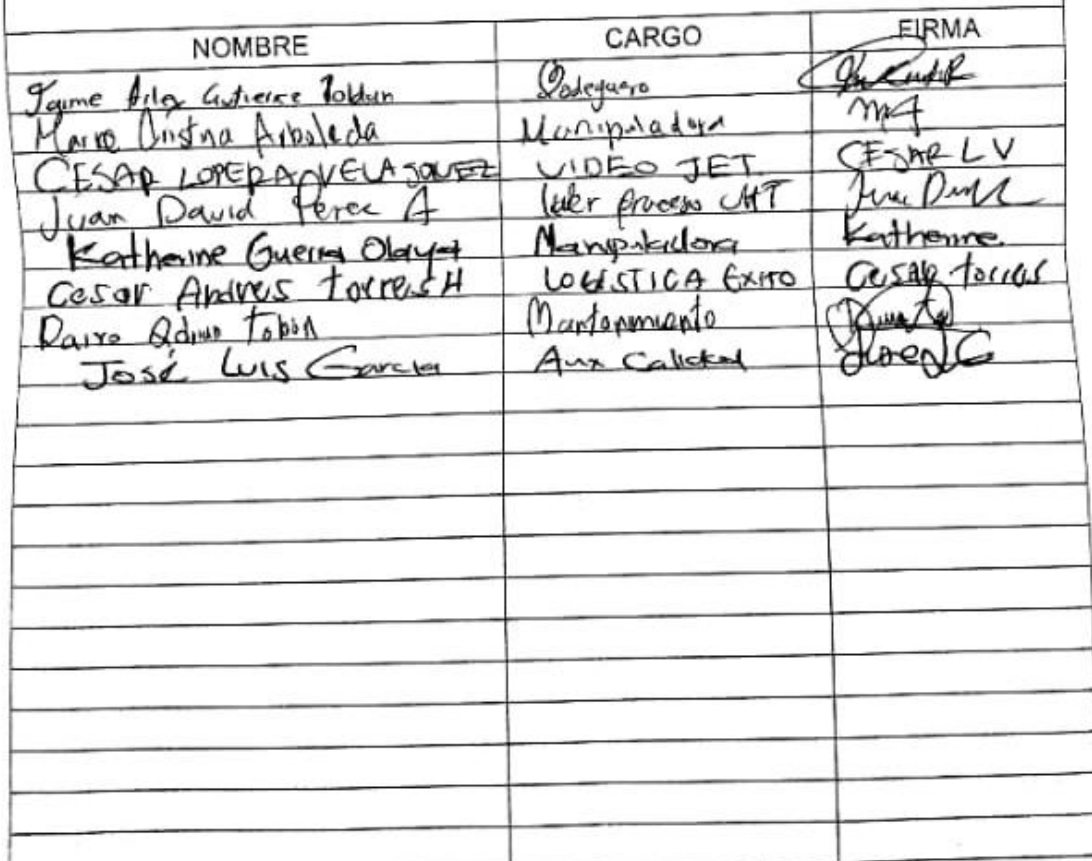 NOMBRE CARGO FIRMA
Jaime Gutierrez Bodeguero
Cristina Arboleda Manipuladora
CESAR LOPERA VELASQUEZ VIDEO JET CESAR LV
Juan David Perez A lider proceso UHT
Katherine Guerra Olaya Manipuladora Katherine
Cesar Andres torres H LOGISTICA EXITO Cesar torres
Dairo Tobón Mantenimiento
José Luis Garcia Aux Calidad